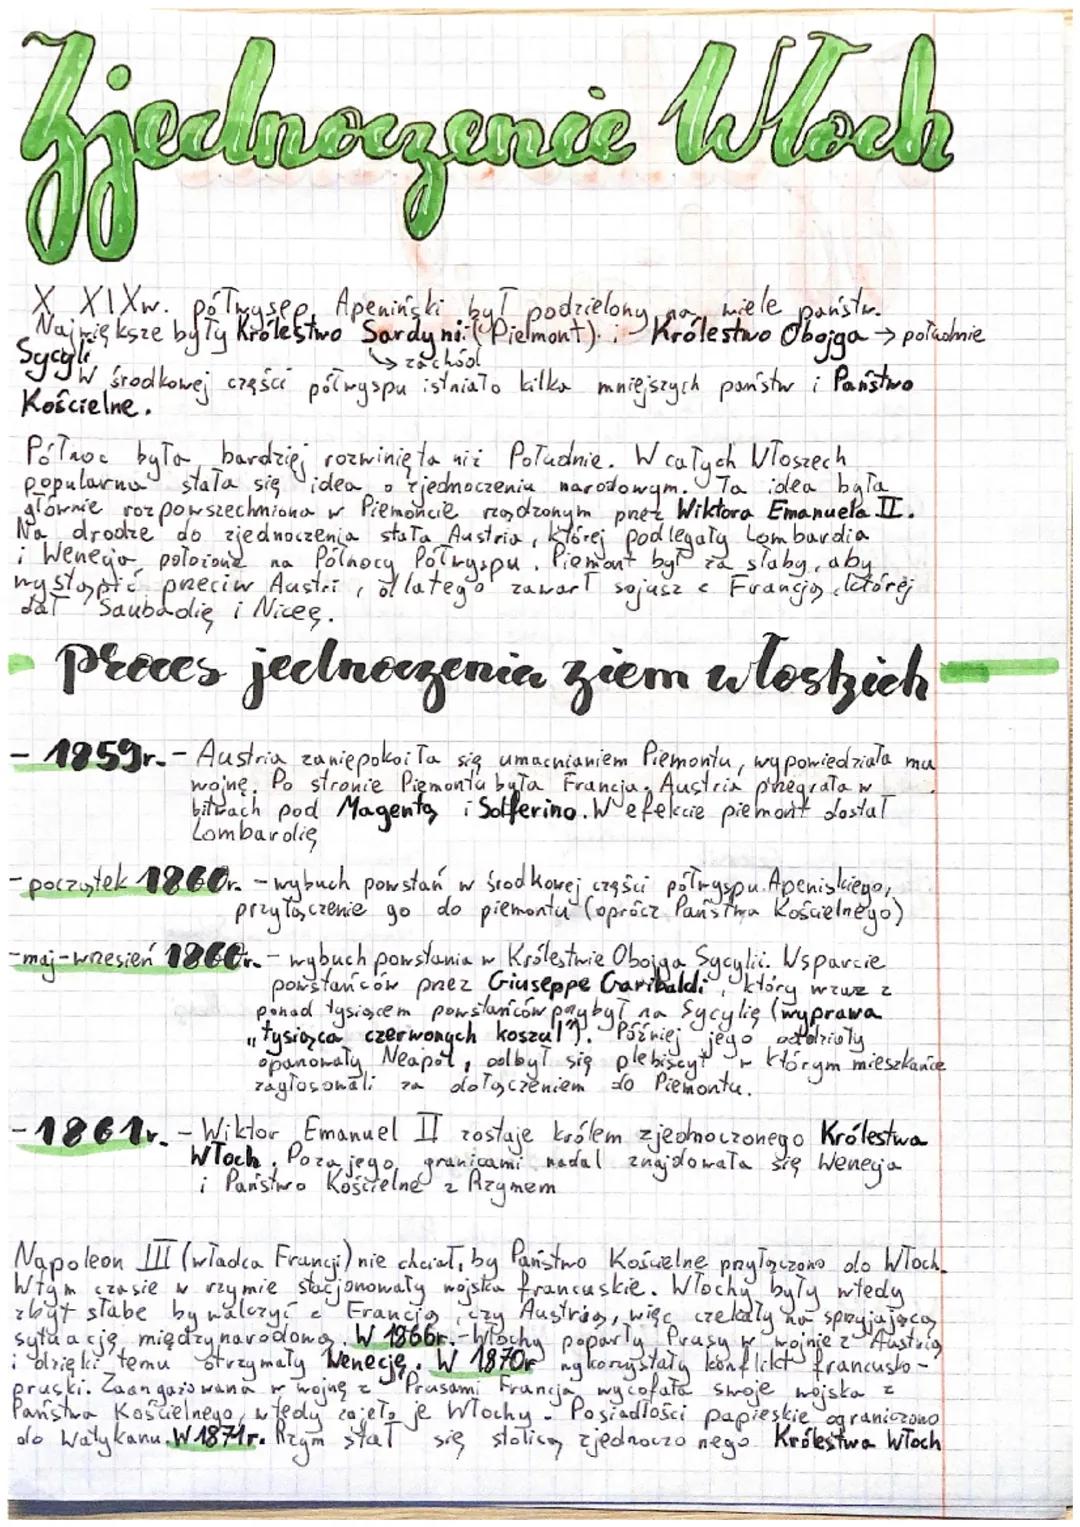 Zjednoczenie Włoch
X XIXw. półwysep Apeniński był podzielony na wiele państw.
Największe były Królestwo Sardynii (Piemont) i Królestwo Obojga → południe
Sycylii
↳ zachód
W środkowej części półwyspu istniało kilka mniejszych państw i Państwo
Kościelne.
Północ była bardziej rozwinięta niż Południe. W całych Włoszech
popularna stała się idea o zjednoczeniu narodowym. Ta idea była
głównie rozpowszechniona w Piemoncie rządzonym przez Wiktora Emanuela II.
Na drodze do zjednoczenia stała Austria, której podlegały Lombardia
i Wenecja położone na Północy Półwyspu. Piemont był za słaby, aby
wystąpić przeciw Austri, dlatego zawarł sojusz z Francją, której
dał Saubadię i Niceę.
- proces jednoczenia ziem włoskich -
- 1859r. - Austria zaniepokoiła się umacnianiem Piemontu, wypowiedziała mu
wojnę. Po stronie Piemontu była Francja. Austria przegrała w
bitwach pod Magentą i Solferino. W efekcie piemont dostał
Lombardię
- początek 1860r. - wybuch powstań w środkowej części półwyspu Apeniskiego,
przyłączenie go do piemontu (oprócz Państwa Kościelnego)
- maj-wrzesień 1860r. - wybuch powstania w Królestwie Obojga Sycylii. Wsparcie
powstańców przez Giuseppe Garibaldi, który wraz z
ponad tysiącem powstańców przybył na Sycylię (wyprawa
„tysiąca czerwonych koszul"). Później jego oddziały
opanowały Neapol, odbył się plebiscyt w którym mieszkańce
zagłosowali za dołączeniem do Piemontu.
- 1861r. - Wiktor Emanuel II zostaje królem zjednoczonego Królestwa
Włoch. Poza jego granicami nadal znajdowała się Wenecja
i Państwo Kościelne z Rzymem
Napoleon III (władca Francji) nie chciał, by Państwo Kościelne przyłączono do Włoch.
W tym czasie w rzymie stacjonowały wojska francuskie. Włochy były wtedy
zbyt słabe by walczyć z Francją, czy Austrią, więc czekały na sprzyjającą
sytuację międzynarodową. W 1866r. - Włochy poparły Prusy w wojnie z Austrią
i dzięki temu otrzymały Wenecję. W 1870r wykorzystały konflikt francusko-
pruski. Zaangażowana w wojnę z Prusami Francja wycofała swoje wojska z
Państwa Kościelnego, wtedy zajęło je Włochy. Posiadłości papieskie ograniczono
do Watykanu. W 1871r. Rzym stał się stolicą zjednoczonego Królestwa Włoch